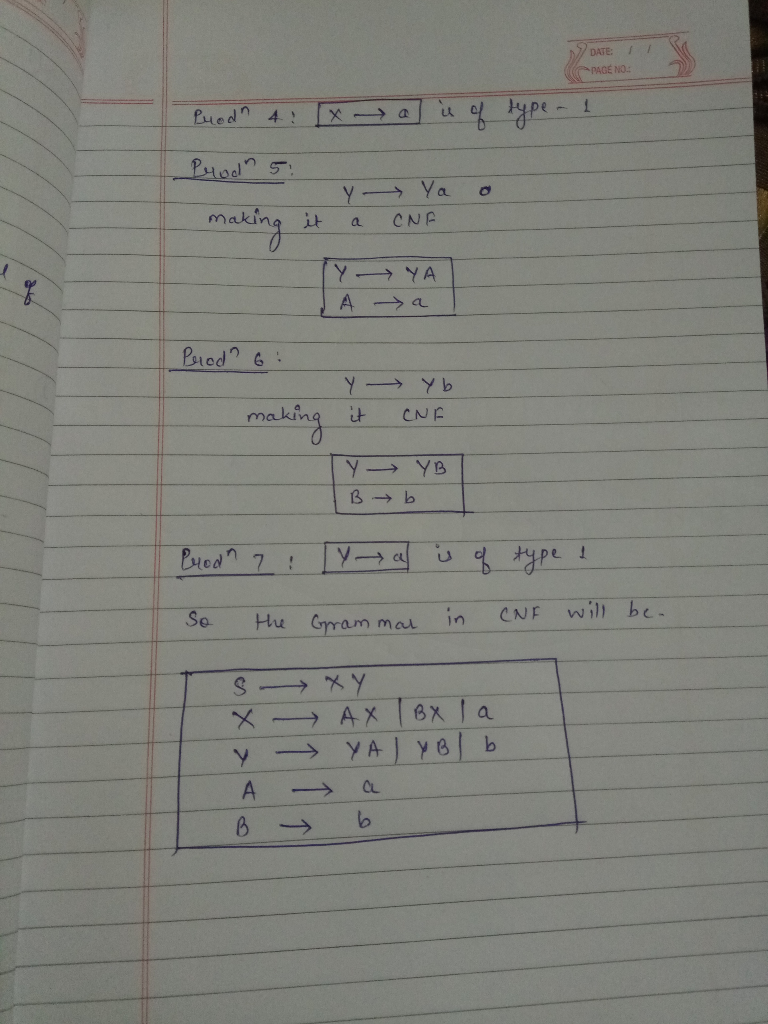 DATE: / /
PAGE NO.:
Prodⁿ 4: X → a is of type - 1
Prodⁿ 5:
Y → Ya
making it a CNF
Y → YA
A → a
of
Prodⁿ 6:
Y → Yb
making it CNF
Y → YB
B → b
Prodⁿ 7: Y → a is of type 1
So the Grammar in CNF will be-
S → XY
X → AX | BX | a
Y → YA | YB | b
A → a
B → b